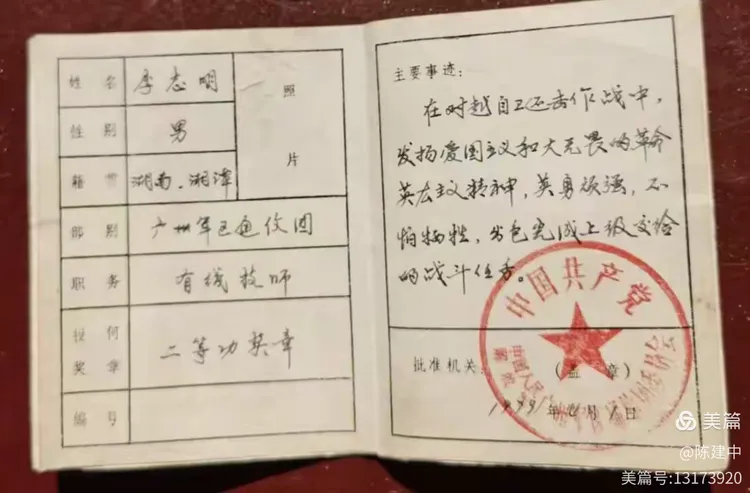 姓名 李志明 照片
性别 男
籍贯 湖南.湘潭
部别 广州军区通信团
职务 有线技师
授何奖章 二等功奖章
编号
主要事迹:
在对越自卫还击作战中,
发扬爱国主义和大无畏的革命
英雄主义精神,英勇顽强,不
怕牺牲,出色完成上级交给
的战斗任务。
中国共产党
中国人民
委员会
批准机关: (盖章)
年 月1日
美篇
@陈建中
美篇号:13173920